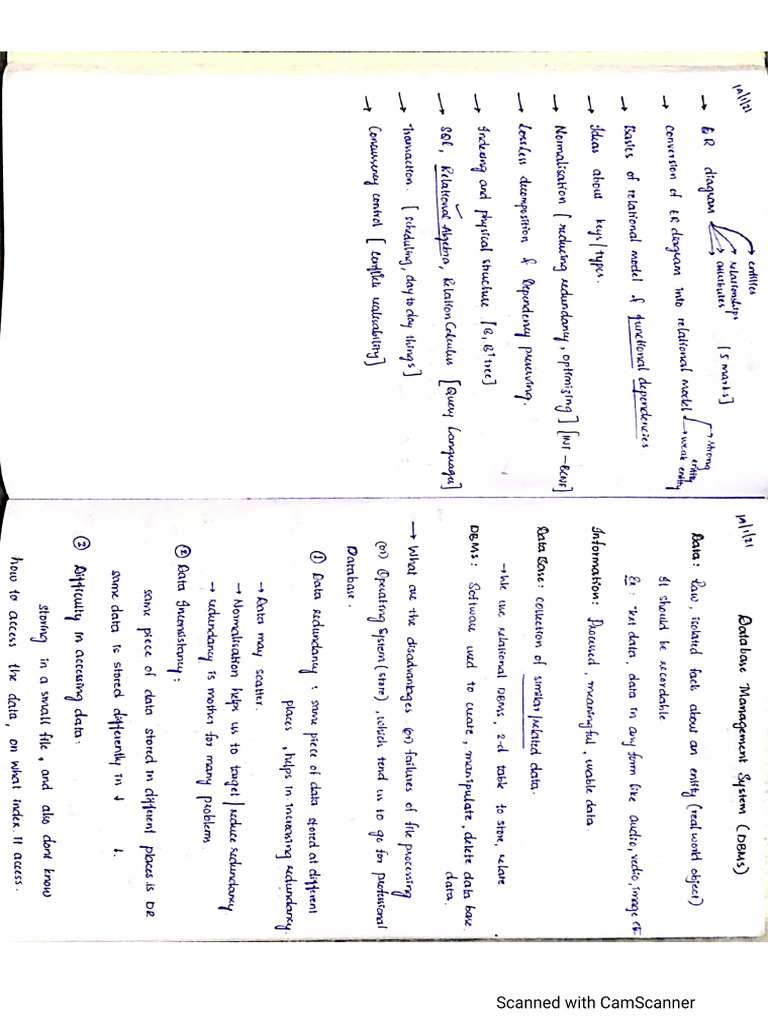 19/1/21
→ ER diagram → entities
→ relationships
→ attributes
[5 marks]
→ conversion of ER diagram into relational model → strong entity
→ weak entity
→ Basics of relational model & functional dependencies.
→ Ideas about keys/types.
→ Normalisation [reducing redundancy, optimizing] [1NF - BCNF]
→ lossless decomposition & Dependency preserving.
→ Indexing and physical structure [B, B⁺ tree]
→ SQL, Relational Algebra, Relation Calculus [Query Languages]
→ Transaction. [scheduling, day to day things]
→ Concurrency control [conflict
19/1/21
Database Management System (DBMS)
Data: Raw, isolated fact about an entity (real world object)
It should be recordable
Ex: Text data, data in any form like audio, vedio, image etc.
Information: Processed, meaningful, usable data.
Data Base: collection of similar/related data.
→ We use relational DBMS, 2-d table to store, relate
DBMS: Software used to create, manipulate, delete data base
data.
→ What are the disadvantages (or) failures of file processing
(or) Operating System (store), which tend us to go for professional
Database.
① Data redundancy: same piece of data stored at different
places, helps in increasing redundancy.
→ Data may scatter.
→ Normalisation helps us to target/reduce redundancy
→ redundancy is mother for many problems.
② Data Inconsistency:
same piece of data stored in different places is DR
same data is stored differently in ↓ ↓.
② Difficulty in accessing data:
storing in a small file, and also dont know
how to access the data, on what index it access.
Scanned with CamScanner